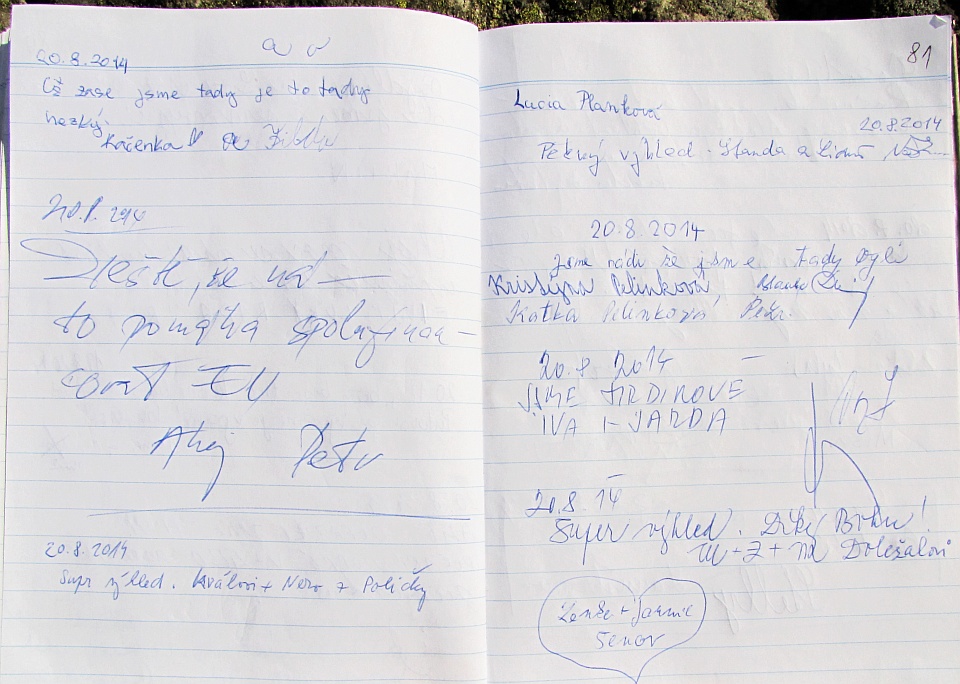 20.8.2014
Už zase jsme tady je to tady
hezký.
Kačenka a
20.8.2014
Ještě, že ná—
to pomáha spolufinan—
covat EU
Ahoj Petr
20.8.2014
Supr výhled. Královi + Nero + Poličky
81
Lucia Planková
20.8.2014
Pěkný výhled. Standa a
20.8.2014
jsme rádi že jsme tady byli
Kristýna Pelinková
Katka Pelinková Petr.
20.8 2014
JSME HRDINOVE
IVA + JARDA
20.8.14
Super výhled. Díky Bohu!
Doležalovi
Lenka + Jarmil
Šenov